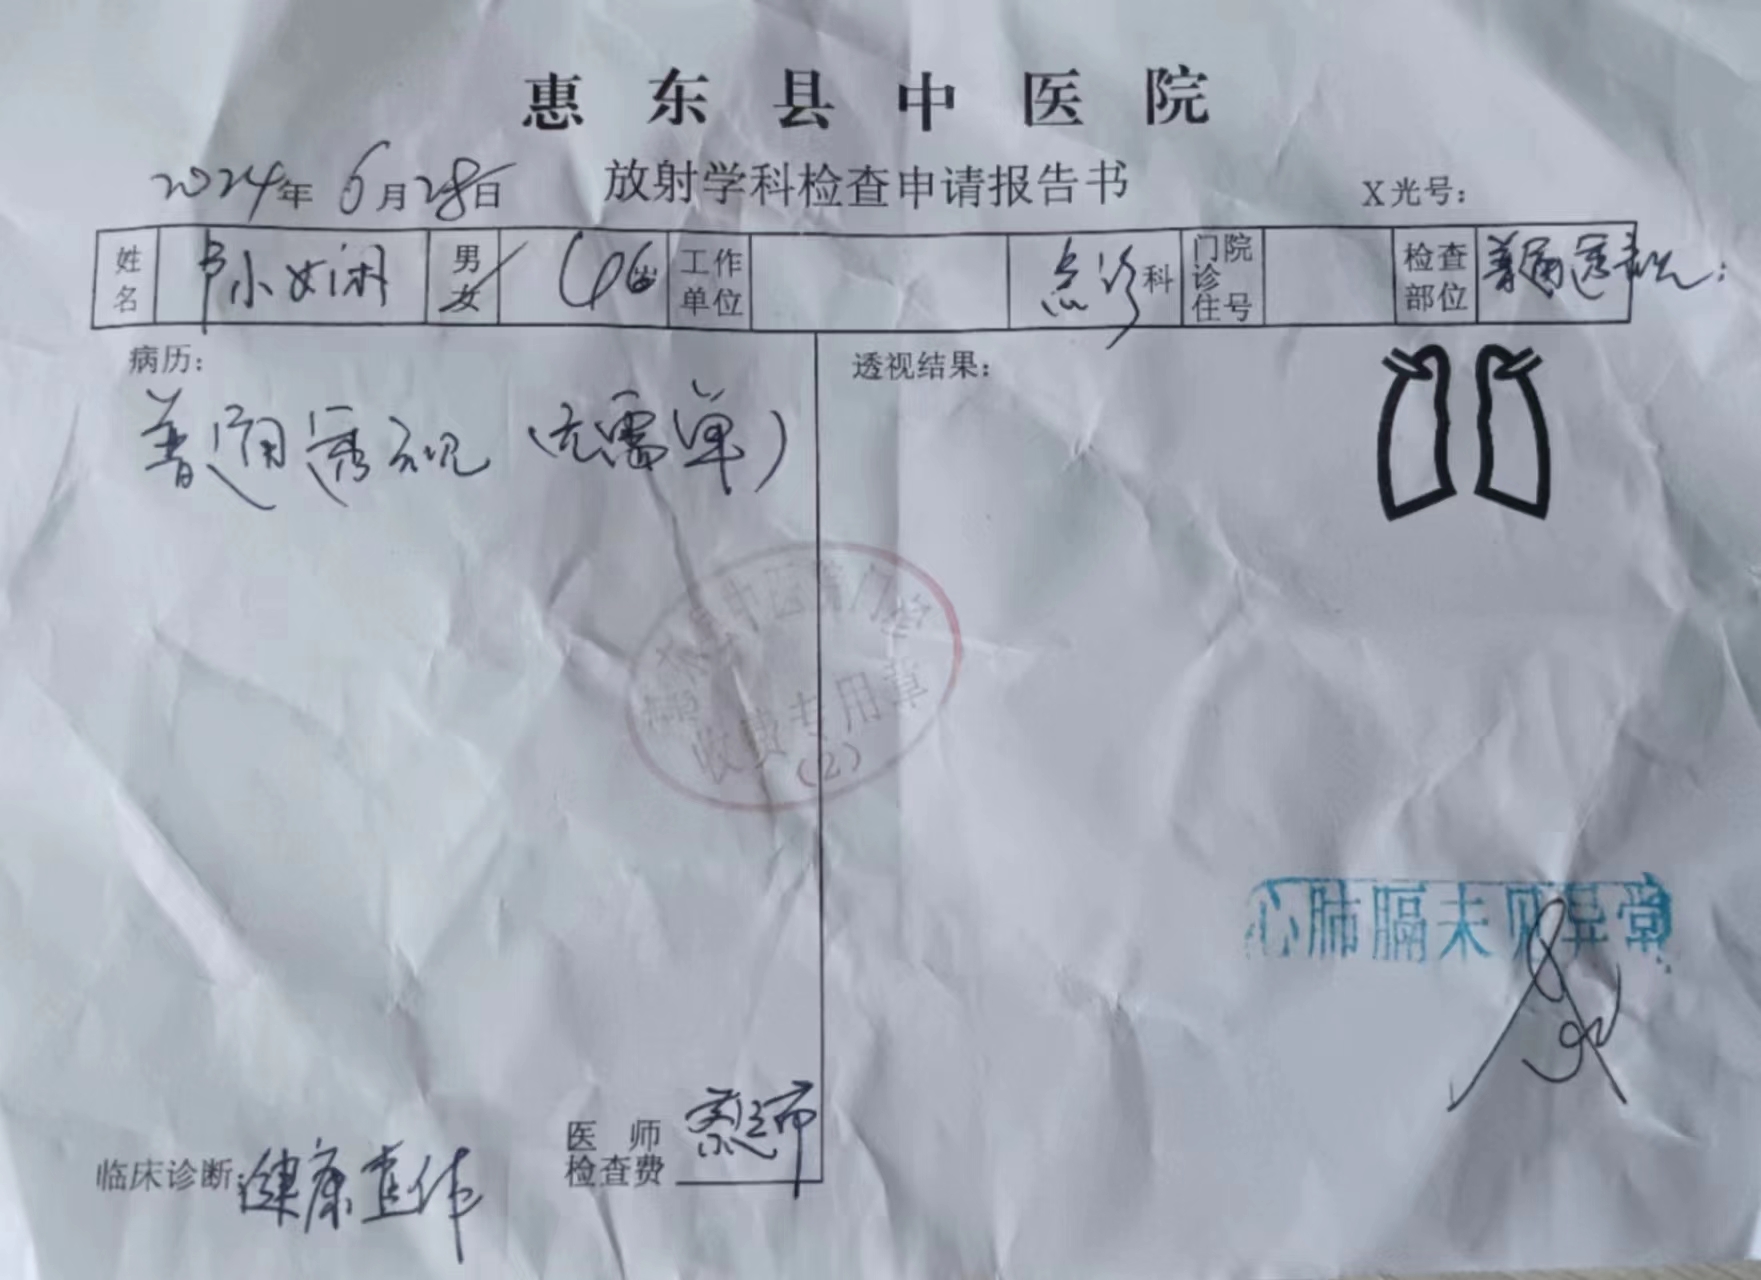 惠东县中医院
2024年6月28日 放射学科检查申请报告书 X光号：
姓名 小娴 男女 46岁 工作单位 急诊科 门诊住院号 检查部位 普通透视：
病历： 透视结果：
普通透视（无需单）
惠东县中医院门诊
收费专用章
（2）
心肺膈未见异常
医师
检查费
临床诊断：健康查体